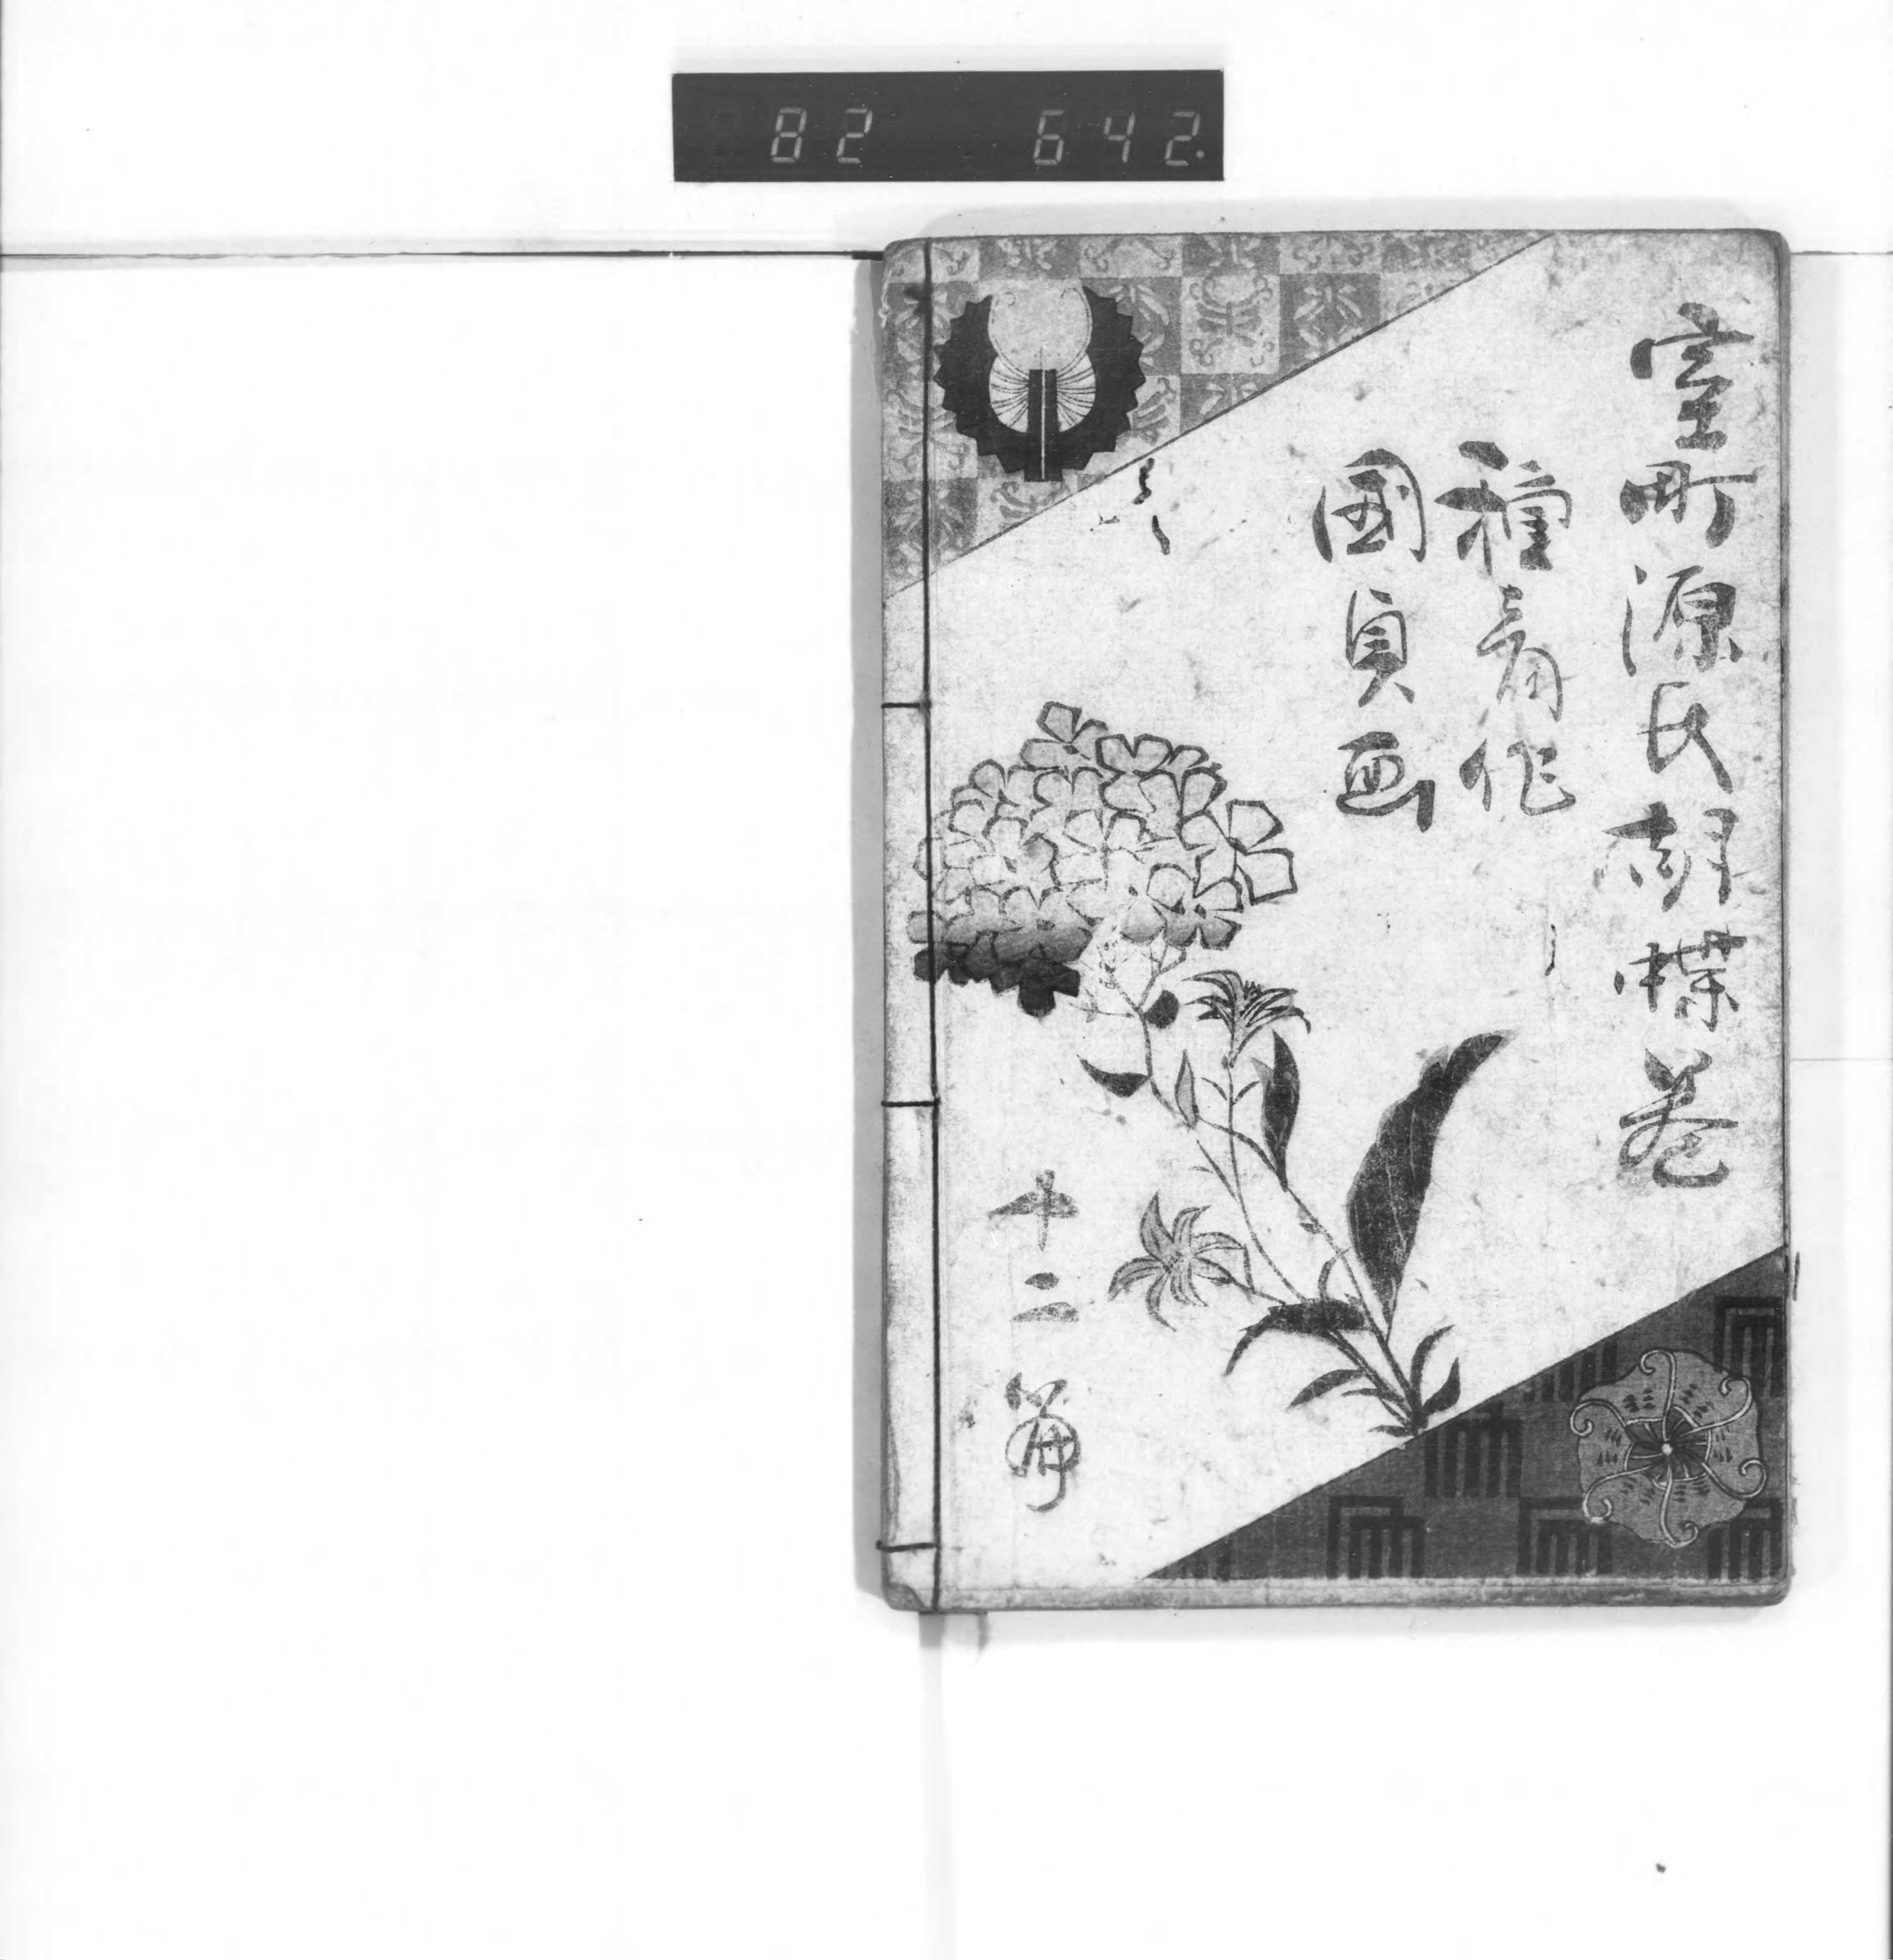 82 642.
室町源氏胡蝶巻
種員作
國貞画
十二編